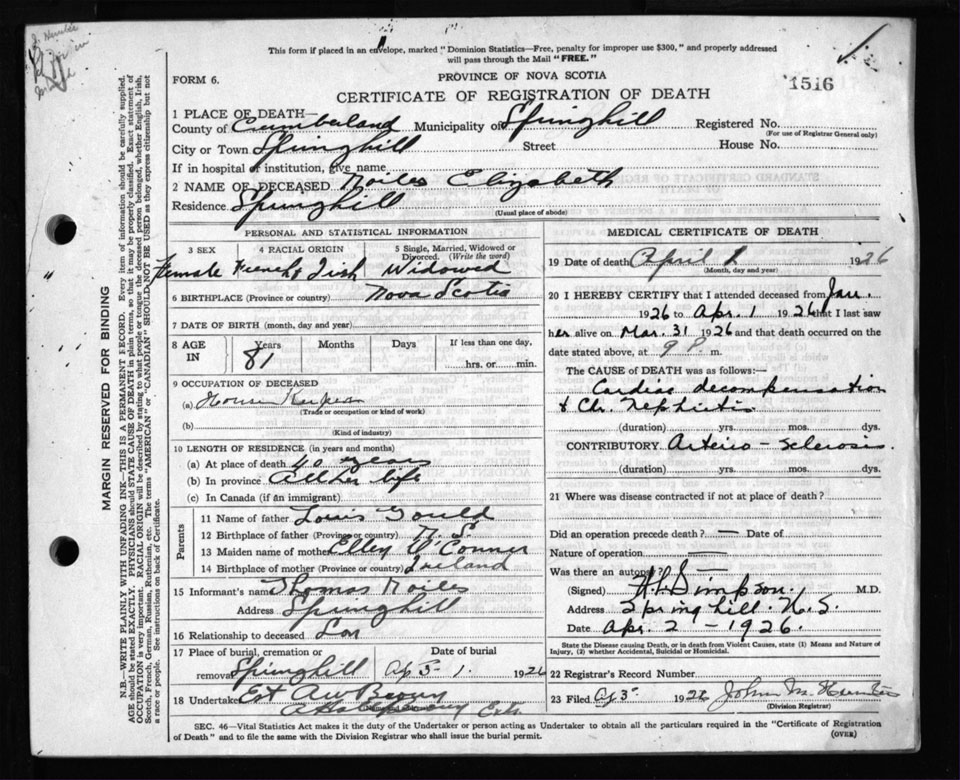 This form if placed in an envelope, marked "Dominion Statistics—Free, penalty for improper use $300," and properly addressed
will pass through the Mail "FREE."
FORM 6.
PROVINCE OF NOVA SCOTIA
1516
CERTIFICATE OF REGISTRATION OF DEATH
1 PLACE OF DEATH—
County of Cumberland Municipality of Springhill Registered No.
(For use of Registrar General only)
City or Town Springhill Street House No.
If in hospital or institution, give name
2 NAME OF DECEASED Moiles Elizabeth
Residence Springhill
(Usual place of abode)
PERSONAL AND STATISTICAL INFORMATION
3 SEX 4 RACIAL ORIGIN 5 Single, Married, Widowed or Divorced. (Write the word)
Female French & Irish Widowed
6 BIRTHPLACE (Province or country) Nova Scotia
7 DATE OF BIRTH (month, day and year)
8 AGE IN Years Months Days If less than one day,
81 hrs. or min.
9 OCCUPATION OF DECEASED
(a) House Keeper
(Trade or occupation or kind of work)
(b)
(Kind of industry)
10 LENGTH OF RESIDENCE (in years and months)
(a) At place of death 40 years
(b) In province All her life
(c) In Canada (if an immigrant)
Parents
11 Name of father Louis Gould
12 Birthplace of father (Province or country) N. S.
13 Maiden name of mother Ellen O'Conner
14 Birthplace of mother (Province or country) Ireland
15 Informant's name Thomas Moiles
Address Springhill
16 Relationship to deceased Son
17 Place of burial, cremation or removal Date of burial
Springhill 1926
18 Undertaker Est A W Brown
MEDICAL CERTIFICATE OF DEATH
19 Date of death April 1 1926
(Month, day and year)
20 I HEREBY CERTIFY that I attended deceased from Jan.
1926 to Apr. 1 1926 that I last saw
her alive on Mar. 31 1926 and that death occurred on
date stated above, at 9 P. m.
The CAUSE of DEATH was as follows:—
Cardiac decompensation
& Chr. Nephritis
(duration) yrs. mos. dys.
CONTRIBUTORY. Arterio-Sclerosis
(duration) yrs. mos. dys.
21 Where was disease contracted if not at place of death?
Did an operation precede death? — Date of
Nature of operation —
Was there an autopsy? —
(Signed) Simpson. M.D.
Address Spring hill. N.S.
Date Apr. 2 - 1926.
State the Disease causing Death, or in death from Violent Causes, state (1) Means and Nature of Injury, (2) whether Accidental, Suicidal or Homicidal.
22 Registrar's Record Number
23 Filed 1926 John M. Hunter
(Division Registrar)
SEC. 46—Vital Statistics Act makes it the duty of the Undertaker or person acting as Undertaker to obtain all the particulars required in the "Certificate of Registration
of Death" and to file the same with the Division Registrar who shall issue the burial permit. (OVER)
MARGIN RESERVED FOR BINDING
N.B.—WRITE PLAINLY WITH UNFADING INK—THIS IS A PERMANENT RECORD. Every item of information should be carefully supplied.
AGE should be stated EXACTLY. PHYSICIANS should STATE CAUSE OF DEATH in plain terms, so that it may be properly classified. Exact statement of
OCCUPATION is very important. RACIAL ORIGIN will be described by stating to what people or tongue the deceased person belonged, whether English, Irish,
Scotch, French, German, Russian, Ruthenian, etc. The terms "AMERICAN" or "CANADIAN" SHOULD NOT BE USED as they express citizenship but not
a race or people. See instructions on back of Certificate.